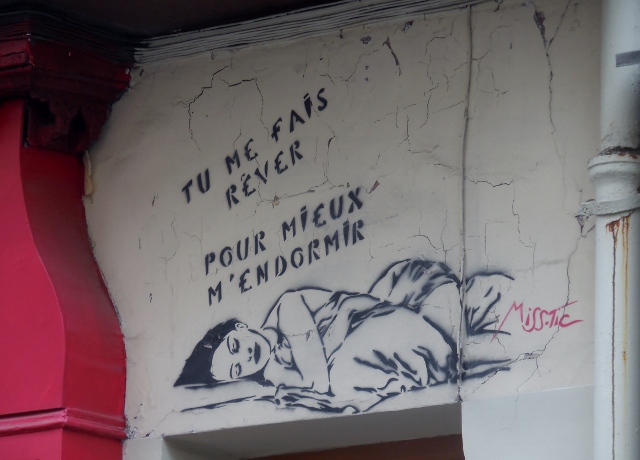 TU ME FAIS
RÊVER
POUR MIEUX
M'ENDORMIR
MISS.TIC